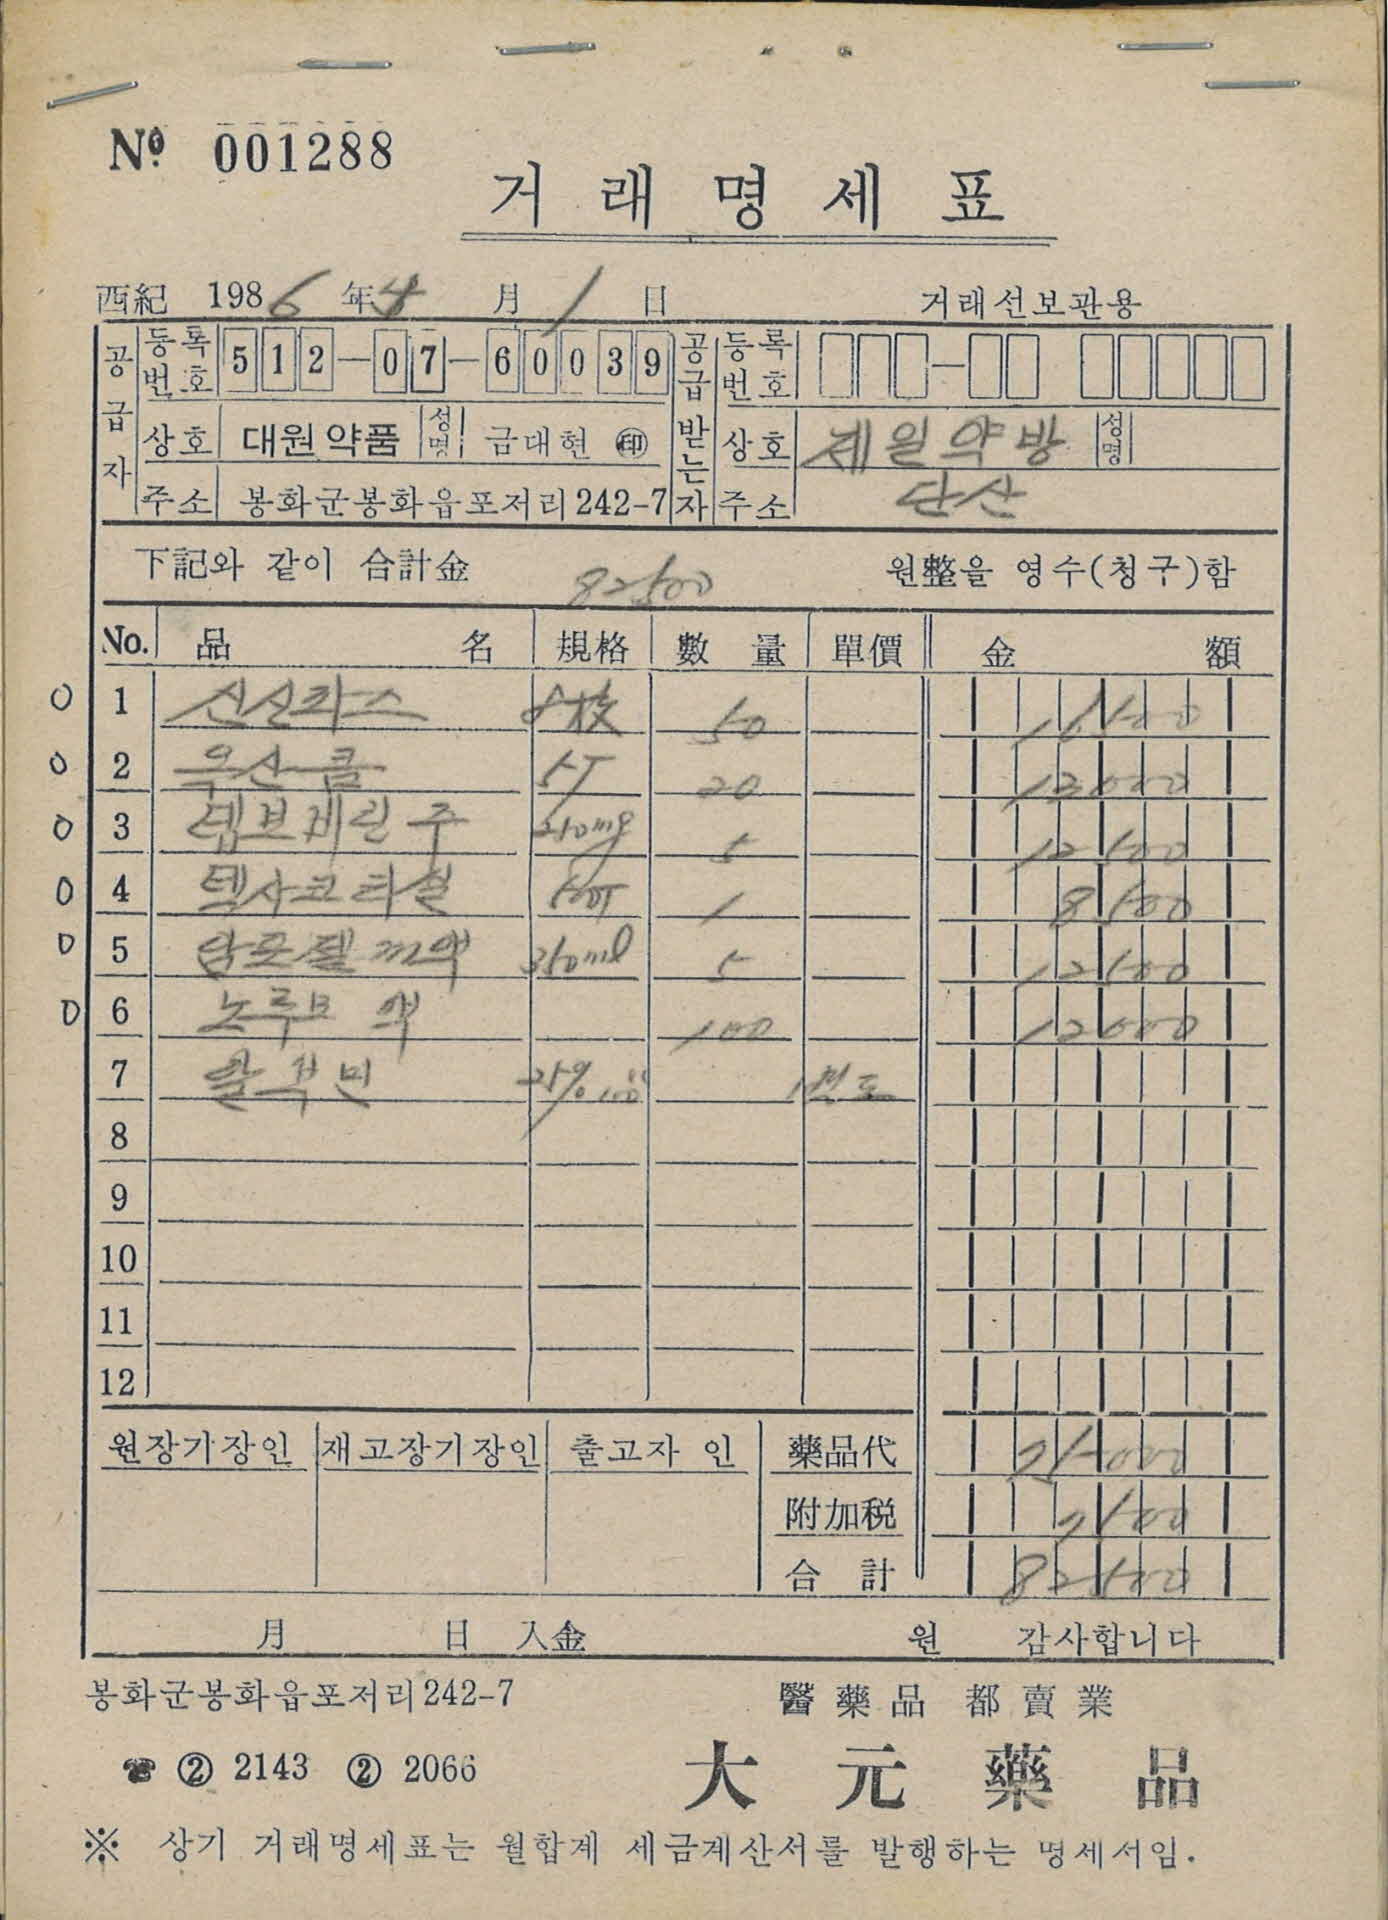 № 001288
거래명세표
西紀 1986年 4月 1日 거래선보관용
공급자 등록번호 512-07-60039 공급받는자 등록번호
상호 대원약품 성명 금대현 ㊞ 상호 제일약방 성명
주소 봉화군봉화읍포저리242-7 주소 단산
下記와 같이 合計金 82500 원整을 영수(청구)함
No. 品名 規格 數量 單價 金額
1 신신파스 8枚 50
2 우산쿰 5T 20 13000
3 주 250mg 5 12500
4 1 8500
5 350ml 5 12500
6 노루모 액 100 12000
7 25%
8
9
10
11
12
원장기장인 재고장기장인 출고자 인 藥品代 75000
附加税 7500
合計 82500
月 日 入金 원 감사합니다
봉화군봉화읍포저리242-7 醫藥品 都賣業
☎ ② 2143 ② 2066 大元藥品
※ 상기 거래명세표는 월합계 세금계산서를 발행하는 명세서임.